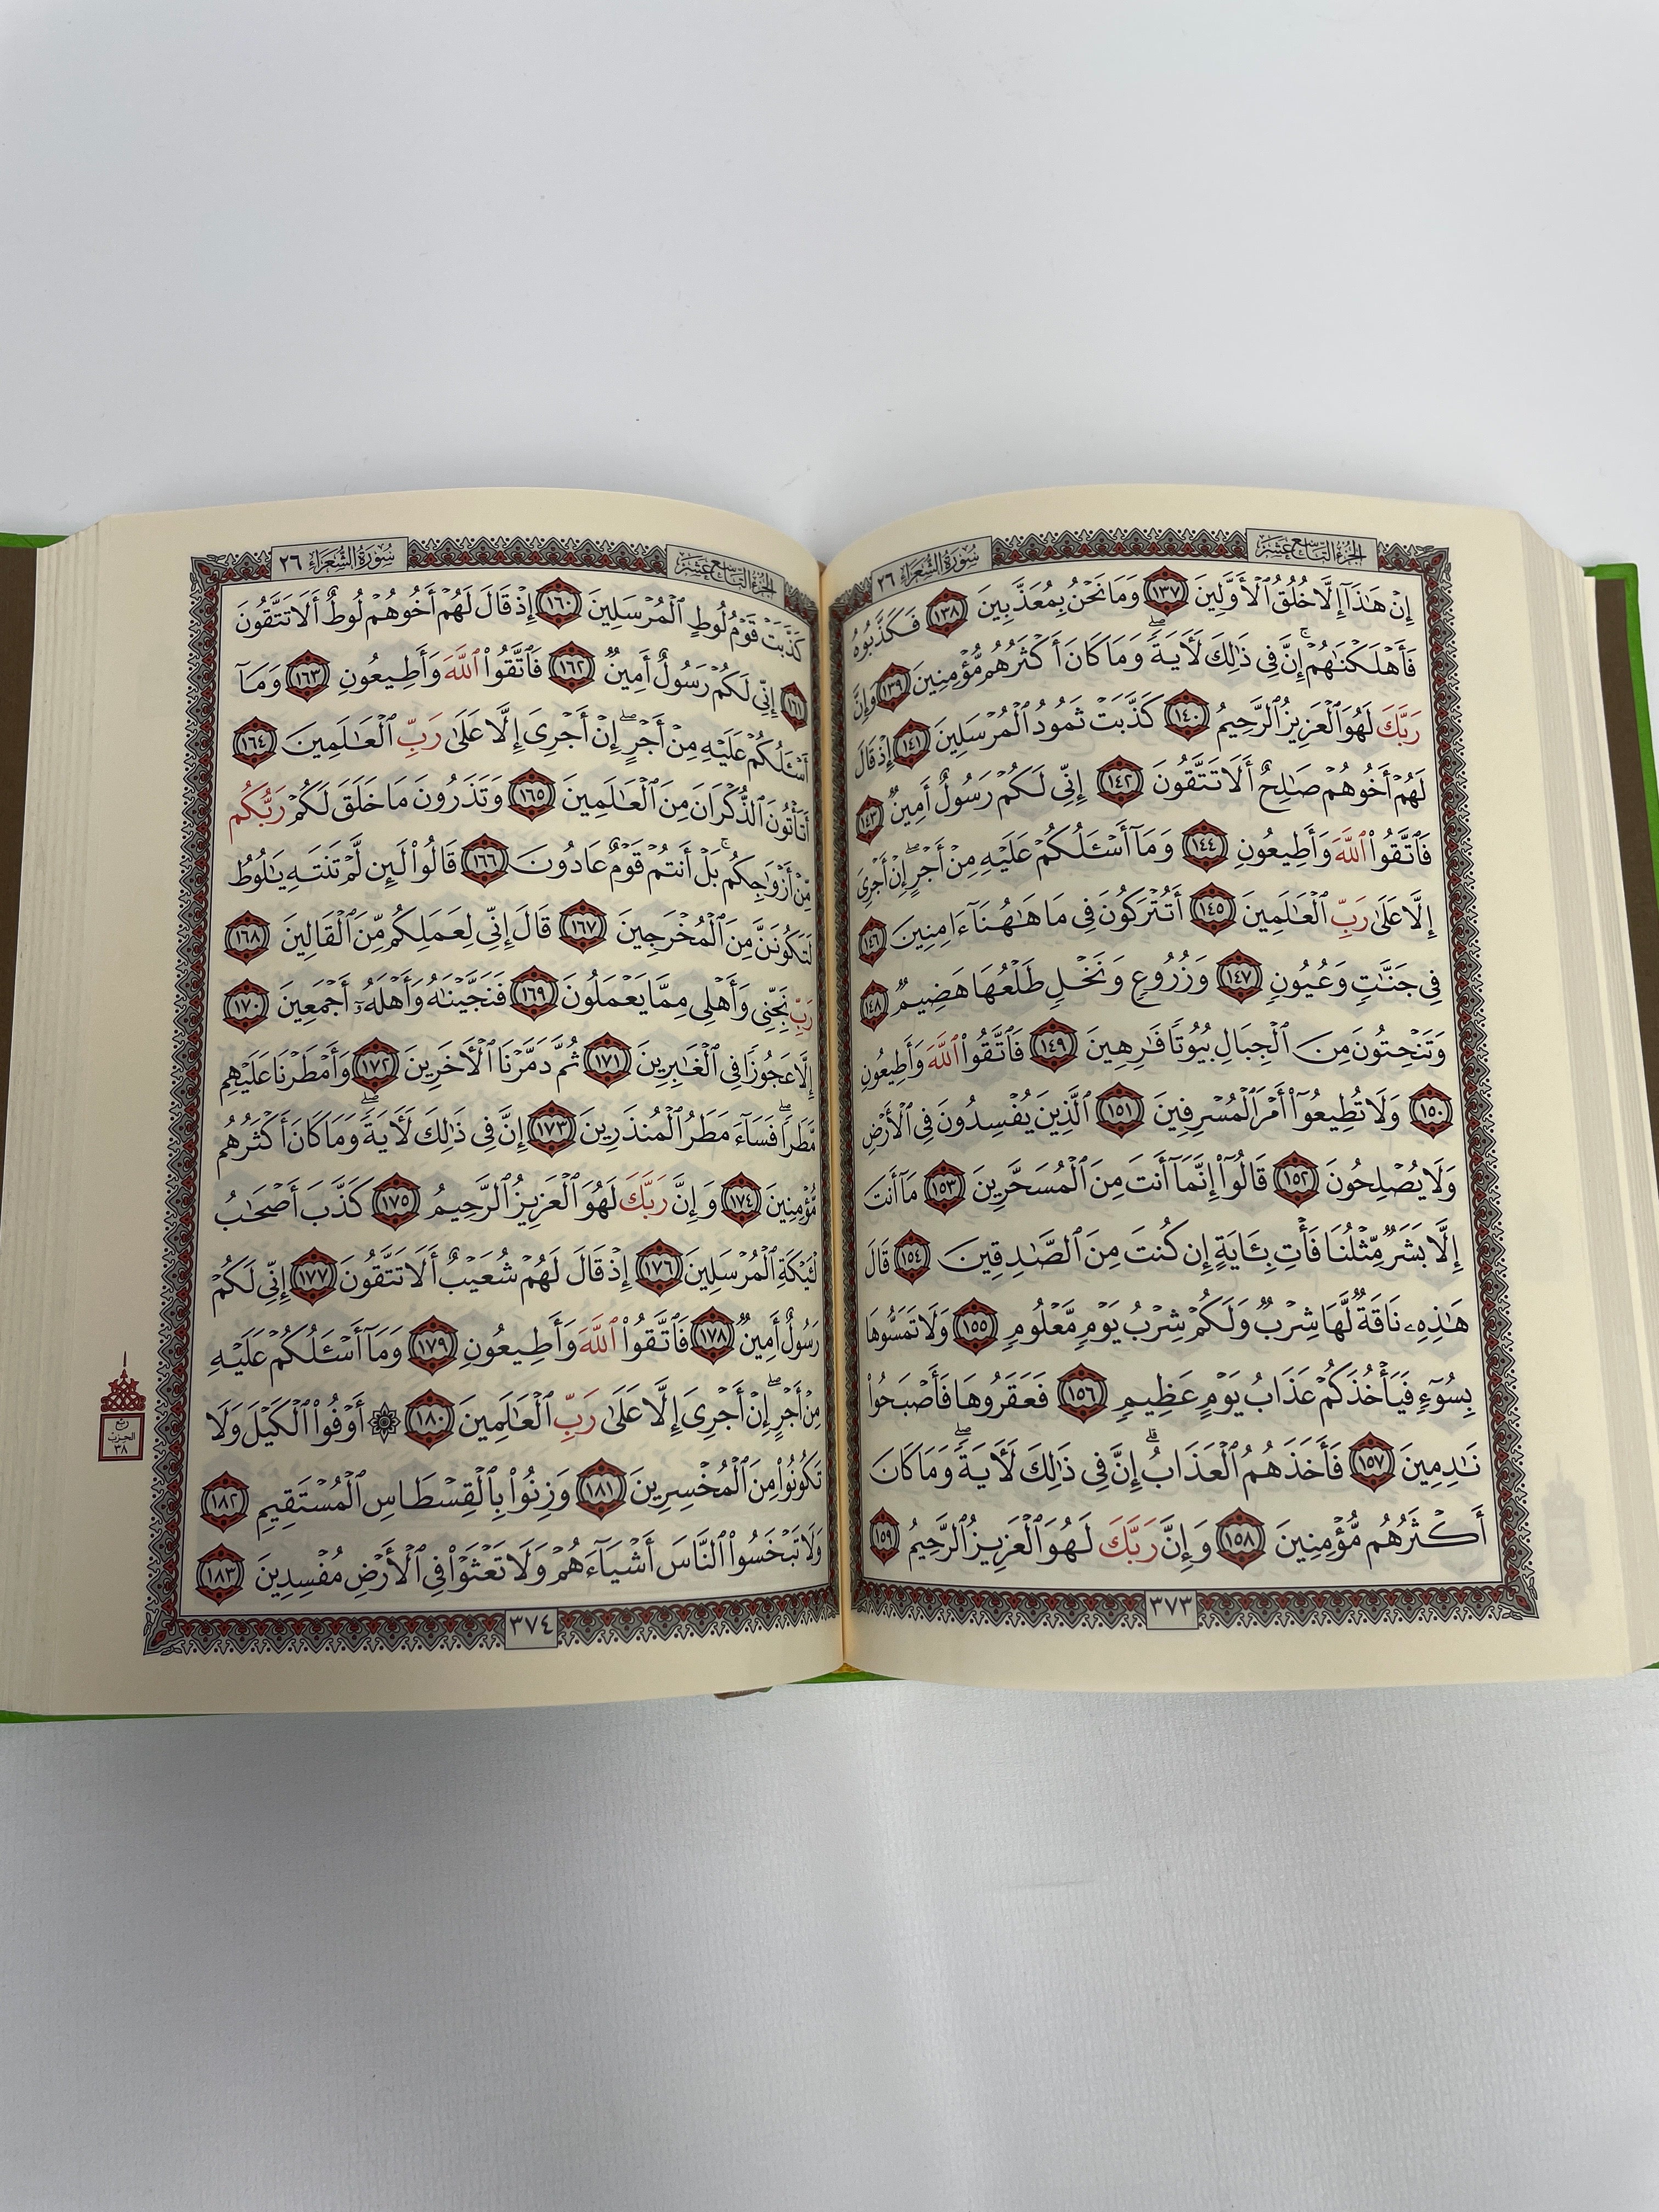 الجزء التاسع عشر
سورة الشعراء ٢٦
إِنْ هَٰذَآ إِلَّا خُلُقُ ٱلْأَوَّلِينَ ١٣٧ وَمَا نَحْنُ بِمُعَذَّبِينَ ١٣٨ فَكَذَّبُوهُ
فَأَهْلَكْنَٰهُمْ ۚ إِنَّ فِى ذَٰلِكَ لَءَايَةً ۖ وَمَا كَانَ أَكْثَرُهُم مُّؤْمِنِينَ ١٣٩ وَإِنَّ
رَبَّكَ لَهُوَ ٱلْعَزِيزُ ٱلرَّحِيمُ ١٤٠ كَذَّبَتْ ثَمُودُ ٱلْمُرْسَلِينَ ١٤١ إِذْ قَالَ
لَهُمْ أَخُوهُمْ صَٰلِحٌ أَلَا تَتَّقُونَ ١٤٢ إِنِّى لَكُمْ رَسُولٌ أَمِينٌ ١٤٣
فَٱتَّقُوا۟ ٱللَّهَ وَأَطِيعُونِ ١٤٤ وَمَآ أَسْـَٔلُكُمْ عَلَيْهِ مِنْ أَجْرٍ ۖ إِنْ أَجْرِىَ
إِلَّا عَلَىٰ رَبِّ ٱلْعَٰلَمِينَ ١٤٥ أَتُتْرَكُونَ فِى مَا هَٰهُنَآ ءَامِنِينَ ١٤٦
فِى جَنَّٰتٍ وَعُيُونٍ ١٤٧ وَزُرُوعٍ وَنَخْلٍ طَلْعُهَا هَضِيمٌ ١٤٨
وَتَنْحِتُونَ مِنَ ٱلْجِبَالِ بُيُوتًا فَٰرِهِينَ ١٤٩ فَٱتَّقُوا۟ ٱللَّهَ وَأَطِيعُونِ
١٥٠ وَلَا تُطِيعُوٓا۟ أَمْرَ ٱلْمُسْرِفِينَ ١٥١ ٱلَّذِينَ يُفْسِدُونَ فِى ٱلْأَرْضِ
وَلَا يُصْلِحُونَ ١٥٢ قَالُوٓا۟ إِنَّمَآ أَنتَ مِنَ ٱلْمُسَحَّرِينَ ١٥٣ مَآ أَنتَ
إِلَّا بَشَرٌ مِّثْلُنَا فَأْتِ بِـَٔايَةٍ إِن كُنتَ مِنَ ٱلصَّٰدِقِينَ ١٥٤ قَالَ
هَٰذِهِۦ نَاقَةٌ لَّهَا شِرْبٌ وَلَكُمْ شِرْبُ يَوْمٍ مَّعْلُومٍ ١٥٥ وَلَا تَمَسُّوهَا
بِسُوٓءٍ فَيَأْخُذَكُمْ عَذَابُ يَوْمٍ عَظِيمٍ ١٥٦ فَعَقَرُوهَا فَأَصْبَحُوا۟
نَٰدِمِينَ ١٥٧ فَأَخَذَهُمُ ٱلْعَذَابُ ۗ إِنَّ فِى ذَٰلِكَ لَءَايَةً ۖ وَمَا كَانَ
أَكْثَرُهُم مُّؤْمِنِينَ ١٥٨ وَإِنَّ رَبَّكَ لَهُوَ ٱلْعَزِيزُ ٱلرَّحِيمُ ١٥٩
٣٧٣
الجزء التاسع عشر
سورة الشعراء ٢٦
كَذَّبَتْ قَوْمُ لُوطٍ ٱلْمُرْسَلِينَ ١٦٠ إِذْ قَالَ لَهُمْ أَخُوهُمْ لُوطٌ أَلَا تَتَّقُونَ
١٦١ إِنِّى لَكُمْ رَسُولٌ أَمِينٌ ١٦٢ فَٱتَّقُوا۟ ٱللَّهَ وَأَطِيعُونِ ١٦٣ وَمَآ
أَسْـَٔلُكُمْ عَلَيْهِ مِنْ أَجْرٍ ۖ إِنْ أَجْرِىَ إِلَّا عَلَىٰ رَبِّ ٱلْعَٰلَمِينَ ١٦٤
أَتَأْتُونَ ٱلذُّكْرَانَ مِنَ ٱلْعَٰلَمِينَ ١٦٥ وَتَذَرُونَ مَا خَلَقَ لَكُمْ رَبُّكُم
مِّنْ أَزْوَٰجِكُم ۚ بَلْ أَنتُمْ قَوْمٌ عَادُونَ ١٦٦ قَالُوا۟ لَئِن لَّمْ تَنتَهِ يَٰلُوطُ
لَتَكُونَنَّ مِنَ ٱلْمُخْرَجِينَ ١٦٧ قَالَ إِنِّى لِعَمَلِكُم مِّنَ ٱلْقَالِينَ ١٦٨
رَبِّ نَجِّنِى وَأَهْلِى مِمَّا يَعْمَلُونَ ١٦٩ فَنَجَّيْنَٰهُ وَأَهْلَهُۥٓ أَجْمَعِينَ ١٧٠
إِلَّا عَجُوزًا فِى ٱلْغَٰبِرِينَ ١٧١ ثُمَّ دَمَّرْنَا ٱلْءَاخَرِينَ ١٧٢ وَأَمْطَرْنَا عَلَيْهِم
مَّطَرًا ۖ فَسَآءَ مَطَرُ ٱلْمُنذَرِينَ ١٧٣ إِنَّ فِى ذَٰلِكَ لَءَايَةً ۖ وَمَا كَانَ أَكْثَرُهُم
مُّؤْمِنِينَ ١٧٤ وَإِنَّ رَبَّكَ لَهُوَ ٱلْعَزِيزُ ٱلرَّحِيمُ ١٧٥ كَذَّبَ أَصْحَٰبُ
لْـَٔيْكَةِ ٱلْمُرْسَلِينَ ١٧٦ إِذْ قَالَ لَهُمْ شُعَيْبٌ أَلَا تَتَّقُونَ ١٧٧ إِنِّى لَكُمْ
رَسُولٌ أَمِينٌ ١٧٨ فَٱتَّقُوا۟ ٱللَّهَ وَأَطِيعُونِ ١٧٩ وَمَآ أَسْـَٔلُكُمْ عَلَيْهِ
مِنْ أَجْرٍ ۖ إِنْ أَجْرِىَ إِلَّا عَلَىٰ رَبِّ ٱلْعَٰلَمِينَ ١٨٠ ۞ أَوْفُوا۟ ٱلْكَيْلَ وَلَا
تَكُونُوا۟ مِنَ ٱلْمُخْسِرِينَ ١٨١ وَزِنُوا۟ بِٱلْقِسْطَاسِ ٱلْمُسْتَقِيمِ ١٨٢
وَلَا تَبْخَسُوا۟ ٱلنَّاسَ أَشْيَآءَهُمْ وَلَا تَعْثَوْا۟ فِى ٱلْأَرْضِ مُفْسِدِينَ ١٨٣
ربع
الحزب
٣٨
٣٧٤